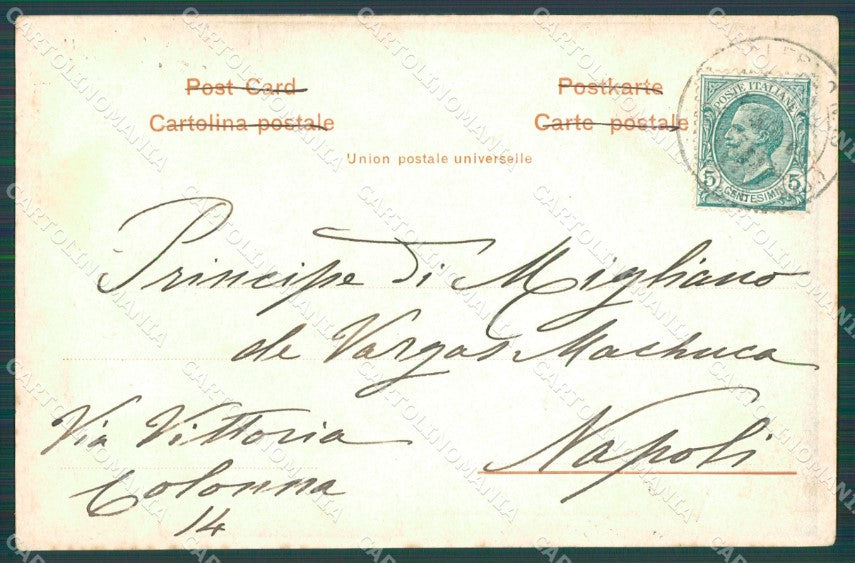 Post Card
Cartolina postale
Postkarte
Carte postale
Union postale universelle
POSTE ITALIANE
5 CENTESIMI 5
Principe di Migliano
de Vargas Machuca
Via Vittoria
Colonna
14
Napoli
CARTOLINOMANIA